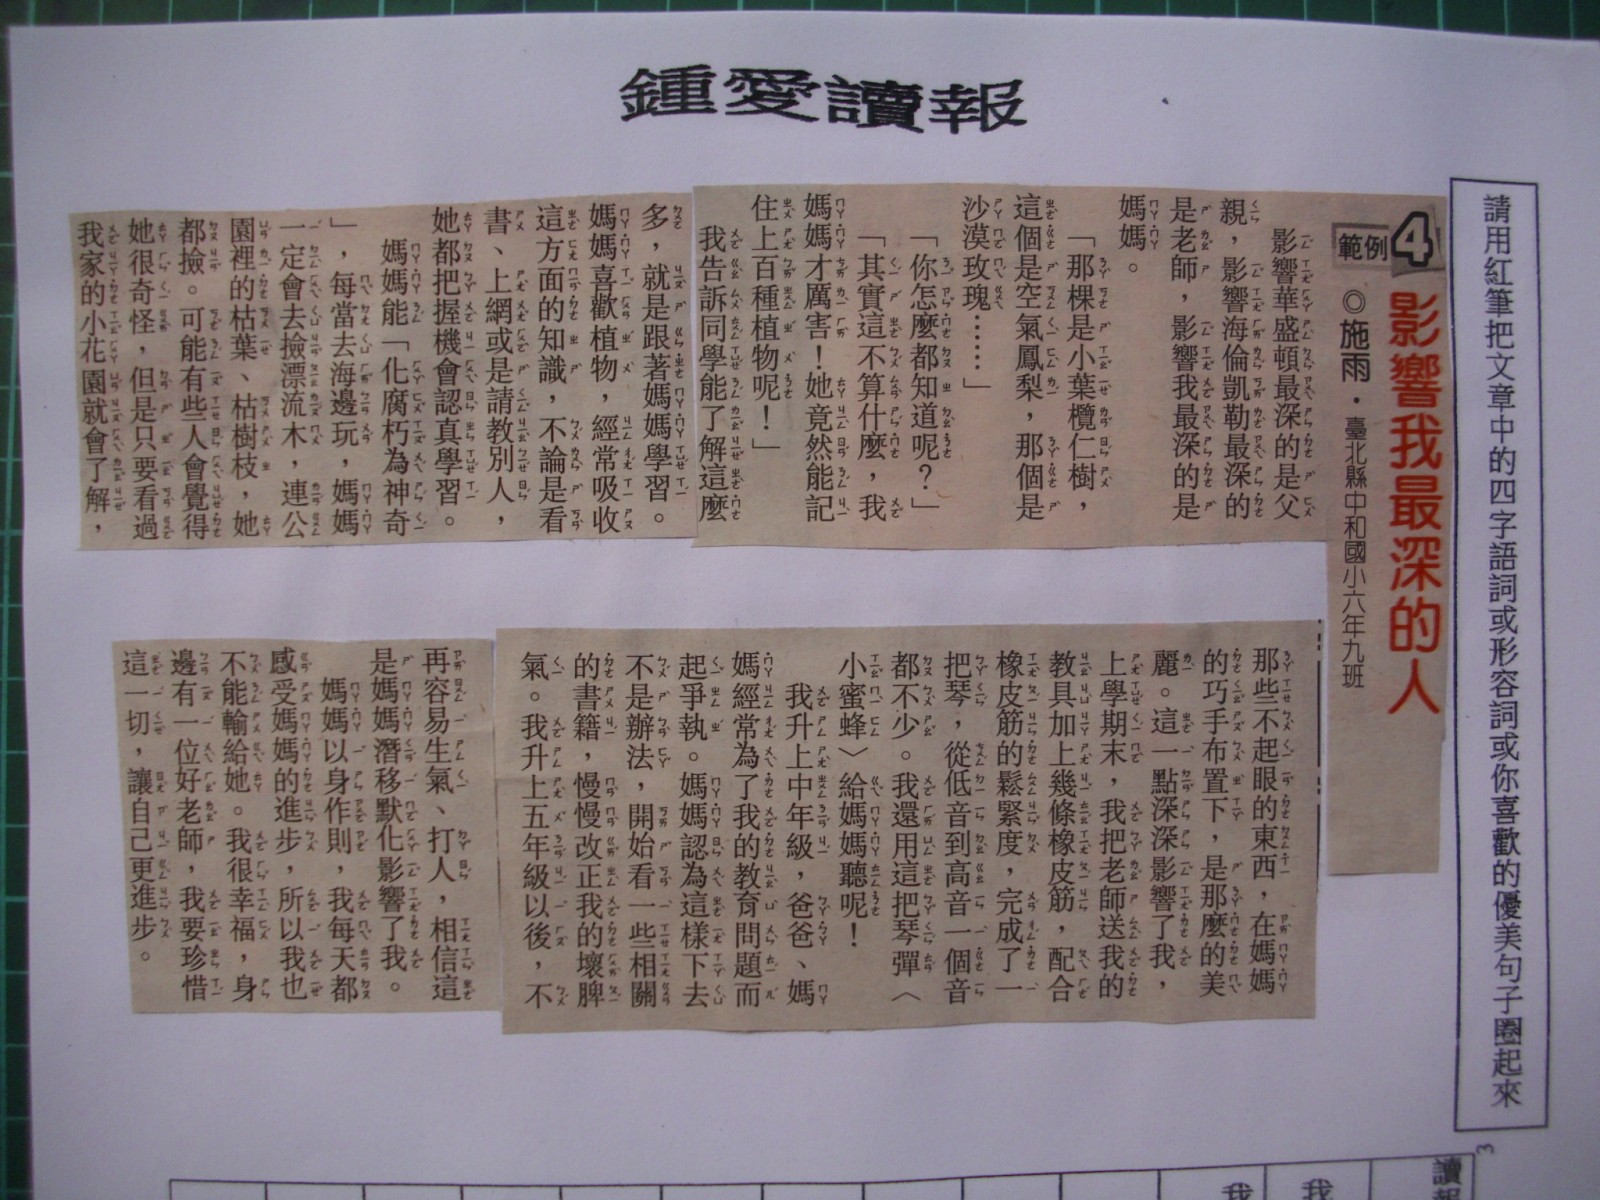 鍾愛讀報
請用紅筆把文章中的四字語詞或形容詞或你喜歡的優美句子圈起來
範例4 影響我最深的人
◎施雨・臺北縣中和國小六年九班
影響華盛頓最深的是父
親，影響海倫凱勒最深的
是老師，影響我最深的是
媽媽。
「那棵是小葉欖仁樹，
這個是空氣鳳梨，那個是
沙漠玫瑰……」
「你怎麼都知道呢？」
「其實這不算什麼，我
媽媽才厲害！她竟然能記
住上百種植物呢！」
我告訴同學能了解這麼
多，就是跟著媽媽學習。
媽媽喜歡植物，經常吸收
這方面的知識，不論是看
書、上網或是請教別人，
她都把握機會認真學習。
媽媽能「化腐朽為神奇
」，每當去海邊玩，媽媽
一定會去撿漂流木，連公
園裡的枯葉、枯樹枝，她
都撿。可能有些人會覺得
她很奇怪，但是只要看過
我家的小花園就會了解，
那些不起眼的東西，在媽媽
的巧手布置下，是那麼的美
麗。這一點深深影響了我，
上學期末，我把老師送我的
教具加上幾條橡皮筋，配合
橡皮筋的鬆緊度，完成了一
把琴，從低音到高音一個音
都不少。我還用這把琴彈〈
小蜜蜂〉給媽媽聽呢！
我升上中年級，爸爸、媽
媽經常為了我的教育問題而
起爭執。媽媽認為這樣下去
不是辦法，開始看一些相關
的書籍，慢慢改正我的壞脾
氣。我升上五年級以後，不
再容易生氣、打人，相信這
是媽媽潛移默化影響了我。
媽媽以身作則，我每天都
感受媽媽的進步，所以我也
不能輸給她。我很幸福，身
邊有一位好老師，我要珍惜
這一切，讓自己更進步。
3
讀報
我
我